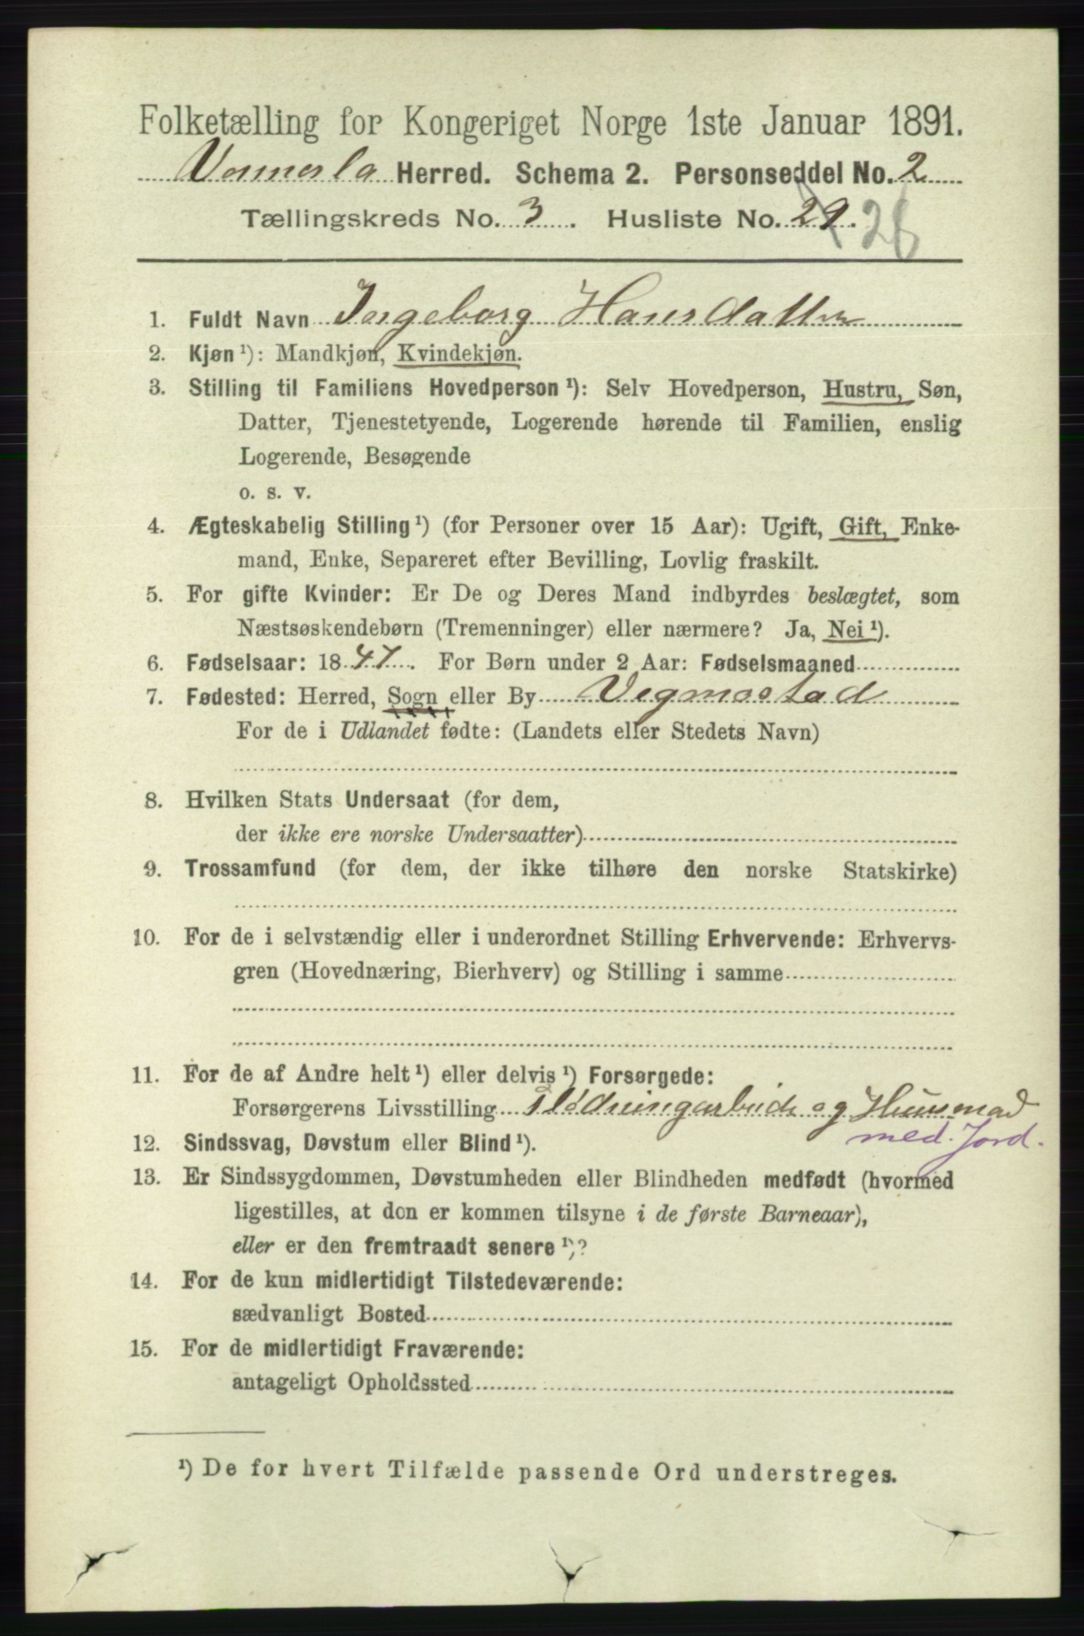 Folketælling for Kongeriget Norge 1ste Januar 1891.
Vennesla Herred. Schema 2. Personseddel No. 2
Tællingskreds No. 3. Husliste No. 29. 26
1. Fuldt Navn Ingeborg Hansdatter
2. Kjøn ¹): Mandkjøn, Kvindekjøn.
3. Stilling til Familiens Hovedperson ¹): Selv Hovedperson, Hustru, Søn,
Datter, Tjenestetyende, Logerende hørende til Familien, enslig
Logerende, Besøgende
o. s. v.
4. Ægteskabelig Stilling ¹) (for Personer over 15 Aar): Ugift, Gift, Enke-
mand, Enke, Separeret efter Bevilling, Lovlig fraskilt.
5. For gifte Kvinder: Er De og Deres Mand indbyrdes beslægtet, som
Næstsøskendebørn (Tremenninger) eller nærmere? Ja, Nei ¹).
6. Fødselsaar: 1847. For Børn under 2 Aar: Fødselsmaaned
7. Fødested: Herred, Sogn eller By Vegmostad
For de i Udlandet fødte: (Landets eller Stedets Navn)
8. Hvilken Stats Undersaat (for dem,
der ikke ere norske Undersaatter)
9. Trossamfund (for dem, der ikke tilhøre den norske Statskirke)
10. For de i selvstændig eller i underordnet Stilling Erhvervende: Erhvervs-
gren (Hovednæring, Bierhverv) og Stilling i samme
11. For de af Andre helt ¹) eller delvis ¹) Forsørgede:
Forsørgerens Livsstilling Flødningarbeide og Husmad
med Jord.
12. Sindssvag, Døvstum eller Blind ¹).
13. Er Sindssygdommen, Døvstumheden eller Blindheden medfødt (hvormed
ligestilles, at den er kommen tilsyne i de første Barneaar),
eller er den fremtraadt senere ¹)?
14. For de kun midlertidigt Tilstedeværende:
sædvanligt Bosted
15. For de midlertidigt Fraværende:
antageligt Opholdssted
¹) De for hvert Tilfælde passende Ord understreges.